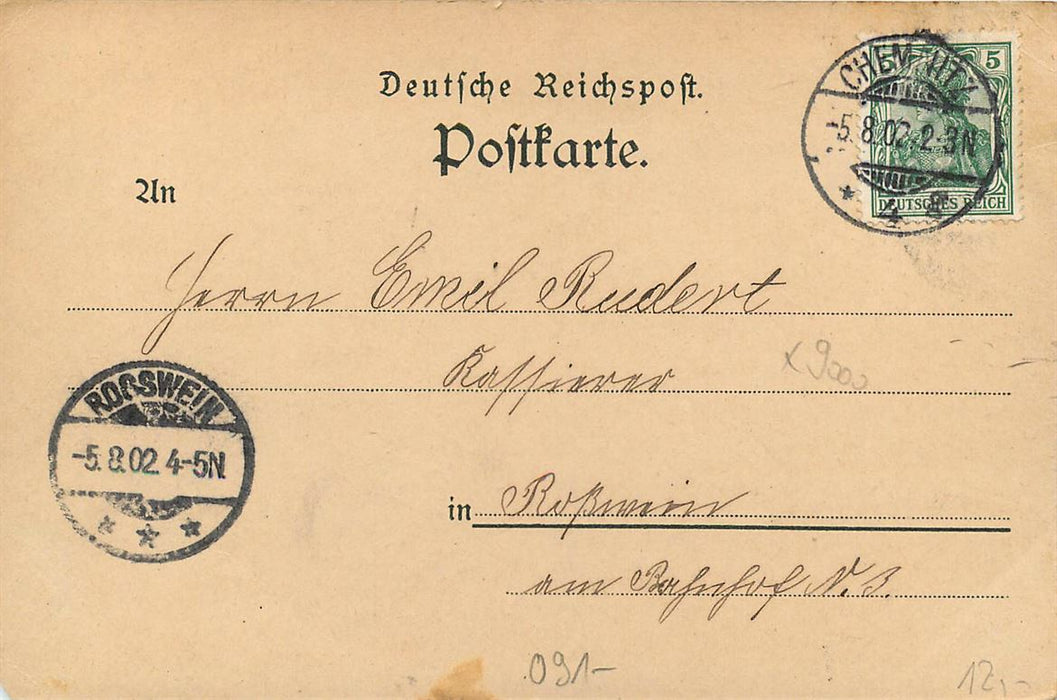 Deutsche Reichspost.
Postkarte.
5
DEUTSCHES REICH
CHEMNITZ
-5.8.02. 2-3N
* 4 8
An
Herrn Emil Rudert
Kassierer
x 9000
ROSSWEIN
-5.8.02. 4-5N.
* * *
in Roßwein
am Bahnhof N. 3.
091-
12,-